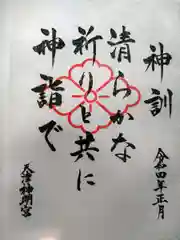 神訓
清らかな
祈りと共に
神詣で
令和四年正月
天津神明宮